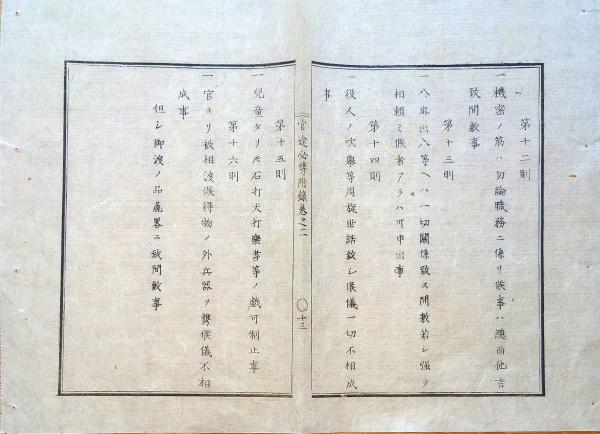 第十二則
一機密ノ筋ハ勿論職務ニ係リ候事ハ總而他言
致間敷事
第十三則
一八年出八等ヘハ一切關係致ス間敷若シ强テ
相賴ミ候者アラハ可申出事
第十四則
一役人ノ吹擧等周旋世話致シ候儀一切不相成
事
官途必携附錄卷之二
十三
第十五則
一兒童タリ𪜈石打犬打樂書等ノ戲可制止事
第十六則
一官ヨリ被相渡候得物ノ外兵器ヲ携候儀不相
成事
但シ御渡ノ品麁畧ニ致間敷事